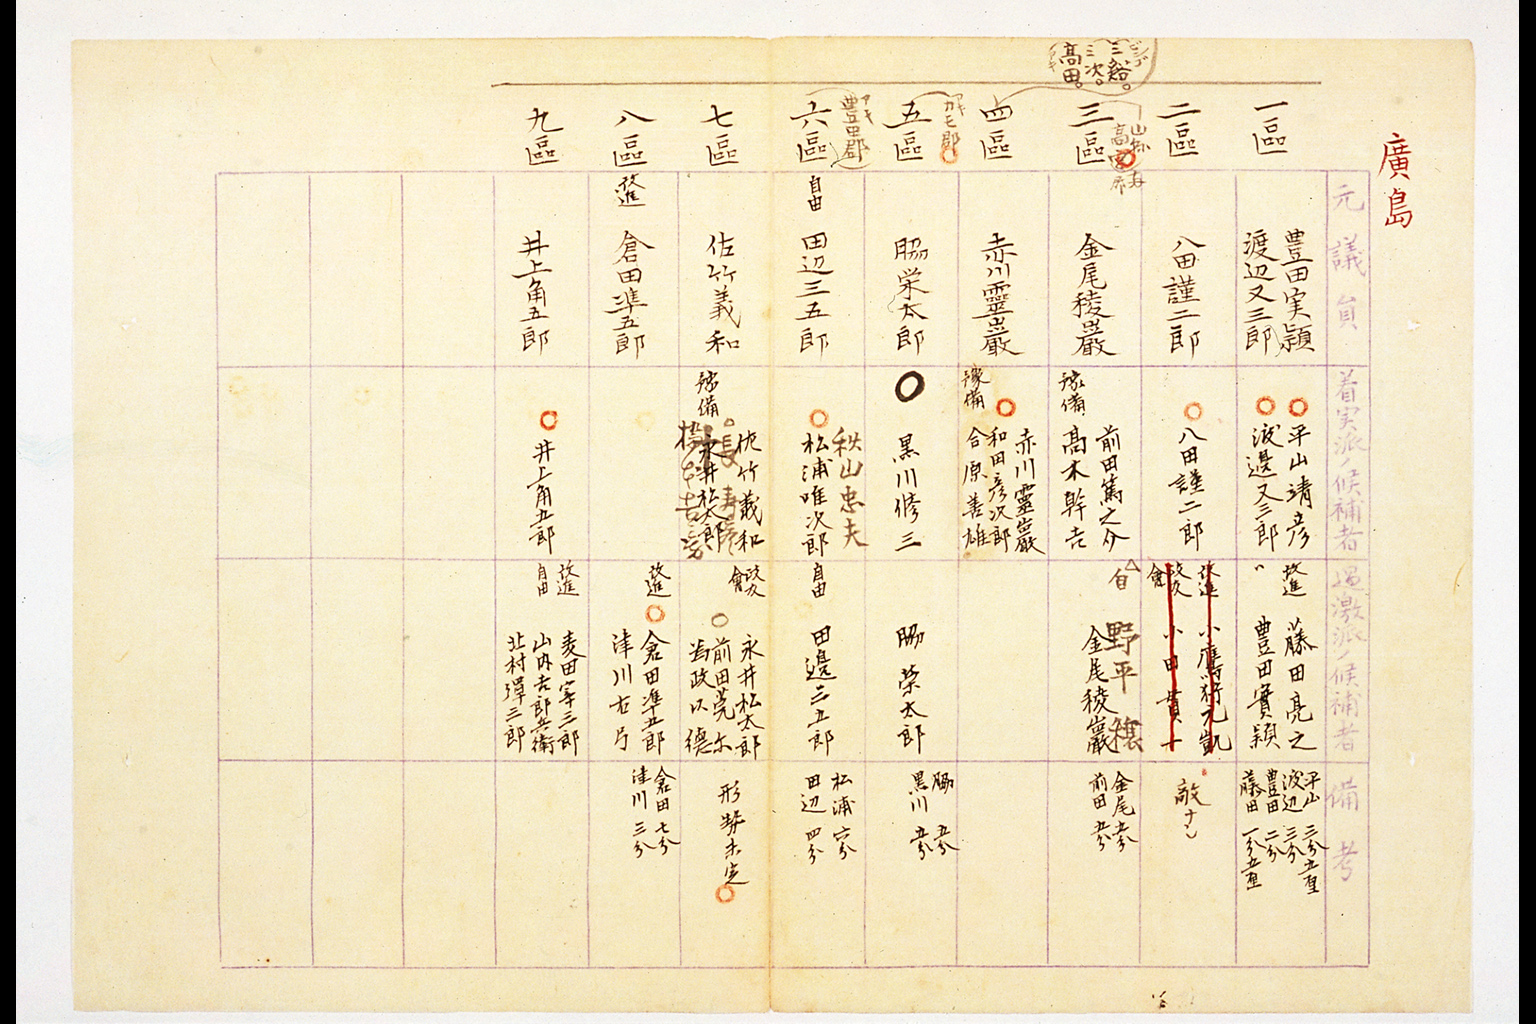 廣島
元議員
着実派ノ候補者
過激派ノ候補者
備考
一區
豊田実穎
渡辺又三郎
平山靖彦
渡邊又三郎
改進 藤田亮之
〃 豊田實穎
平山 三分五厘
渡辺 三分
豊田 二分
藤田 一分五厘
二區
八田謹二郎
八田謹二郎
改進 小鷹狩元凱
政友會 小田貫一
敵ナシ
三區
高田郡
金尾稜嚴
豫備
前田篤之介
高木幹吉
自 野平穰
金尾稜嚴
金尾 五分
前田 五分
三谿
三次
高田
四區
赤川靈巖
豫備
赤川靈巖
和田彦次郎
合原善雄
五區
カモ郡
脇栄太郎
黒川修三
脇榮太郎
脇 五分
黒川 五分
六區
豊田郡
自由 田辺三五郎
秋山忠夫
松浦唯次郎
自由 田邊三五郎
松浦 六分
田辺 四分
七區
佐竹義和
豫備
佐竹義和
永井松太郎
政友會
永井松太郎
前田莞尓
為政以德
形勢未定
八區
改進 倉田準五郎
改進 倉田準五郎
津川右弓
倉田 七分
津川 三分
九區
井上角五郎
井上角五郎
改進
自由
麦田宰三郎
山内吉郎兵衛
北村彈三郎